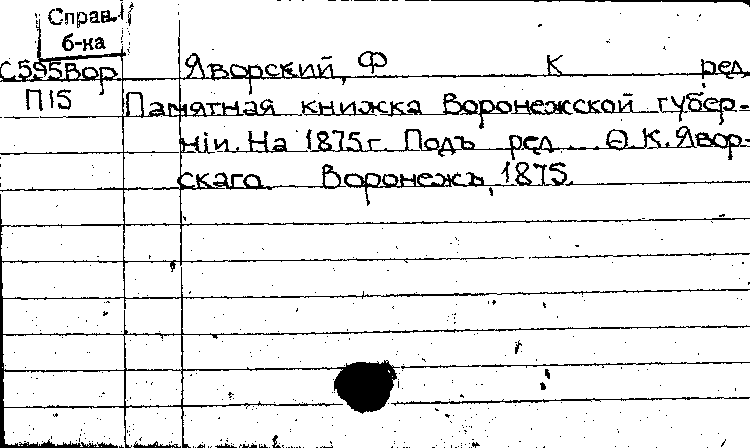 Справ.
б-ка
С595Вор Яворский, Ф К ред.
П15 Памятная книжка Воронежской губер-
нiи. На 1875 г. Подъ ред. Ѳ. К. Явор-
скаго. Воронежъ, 1875.